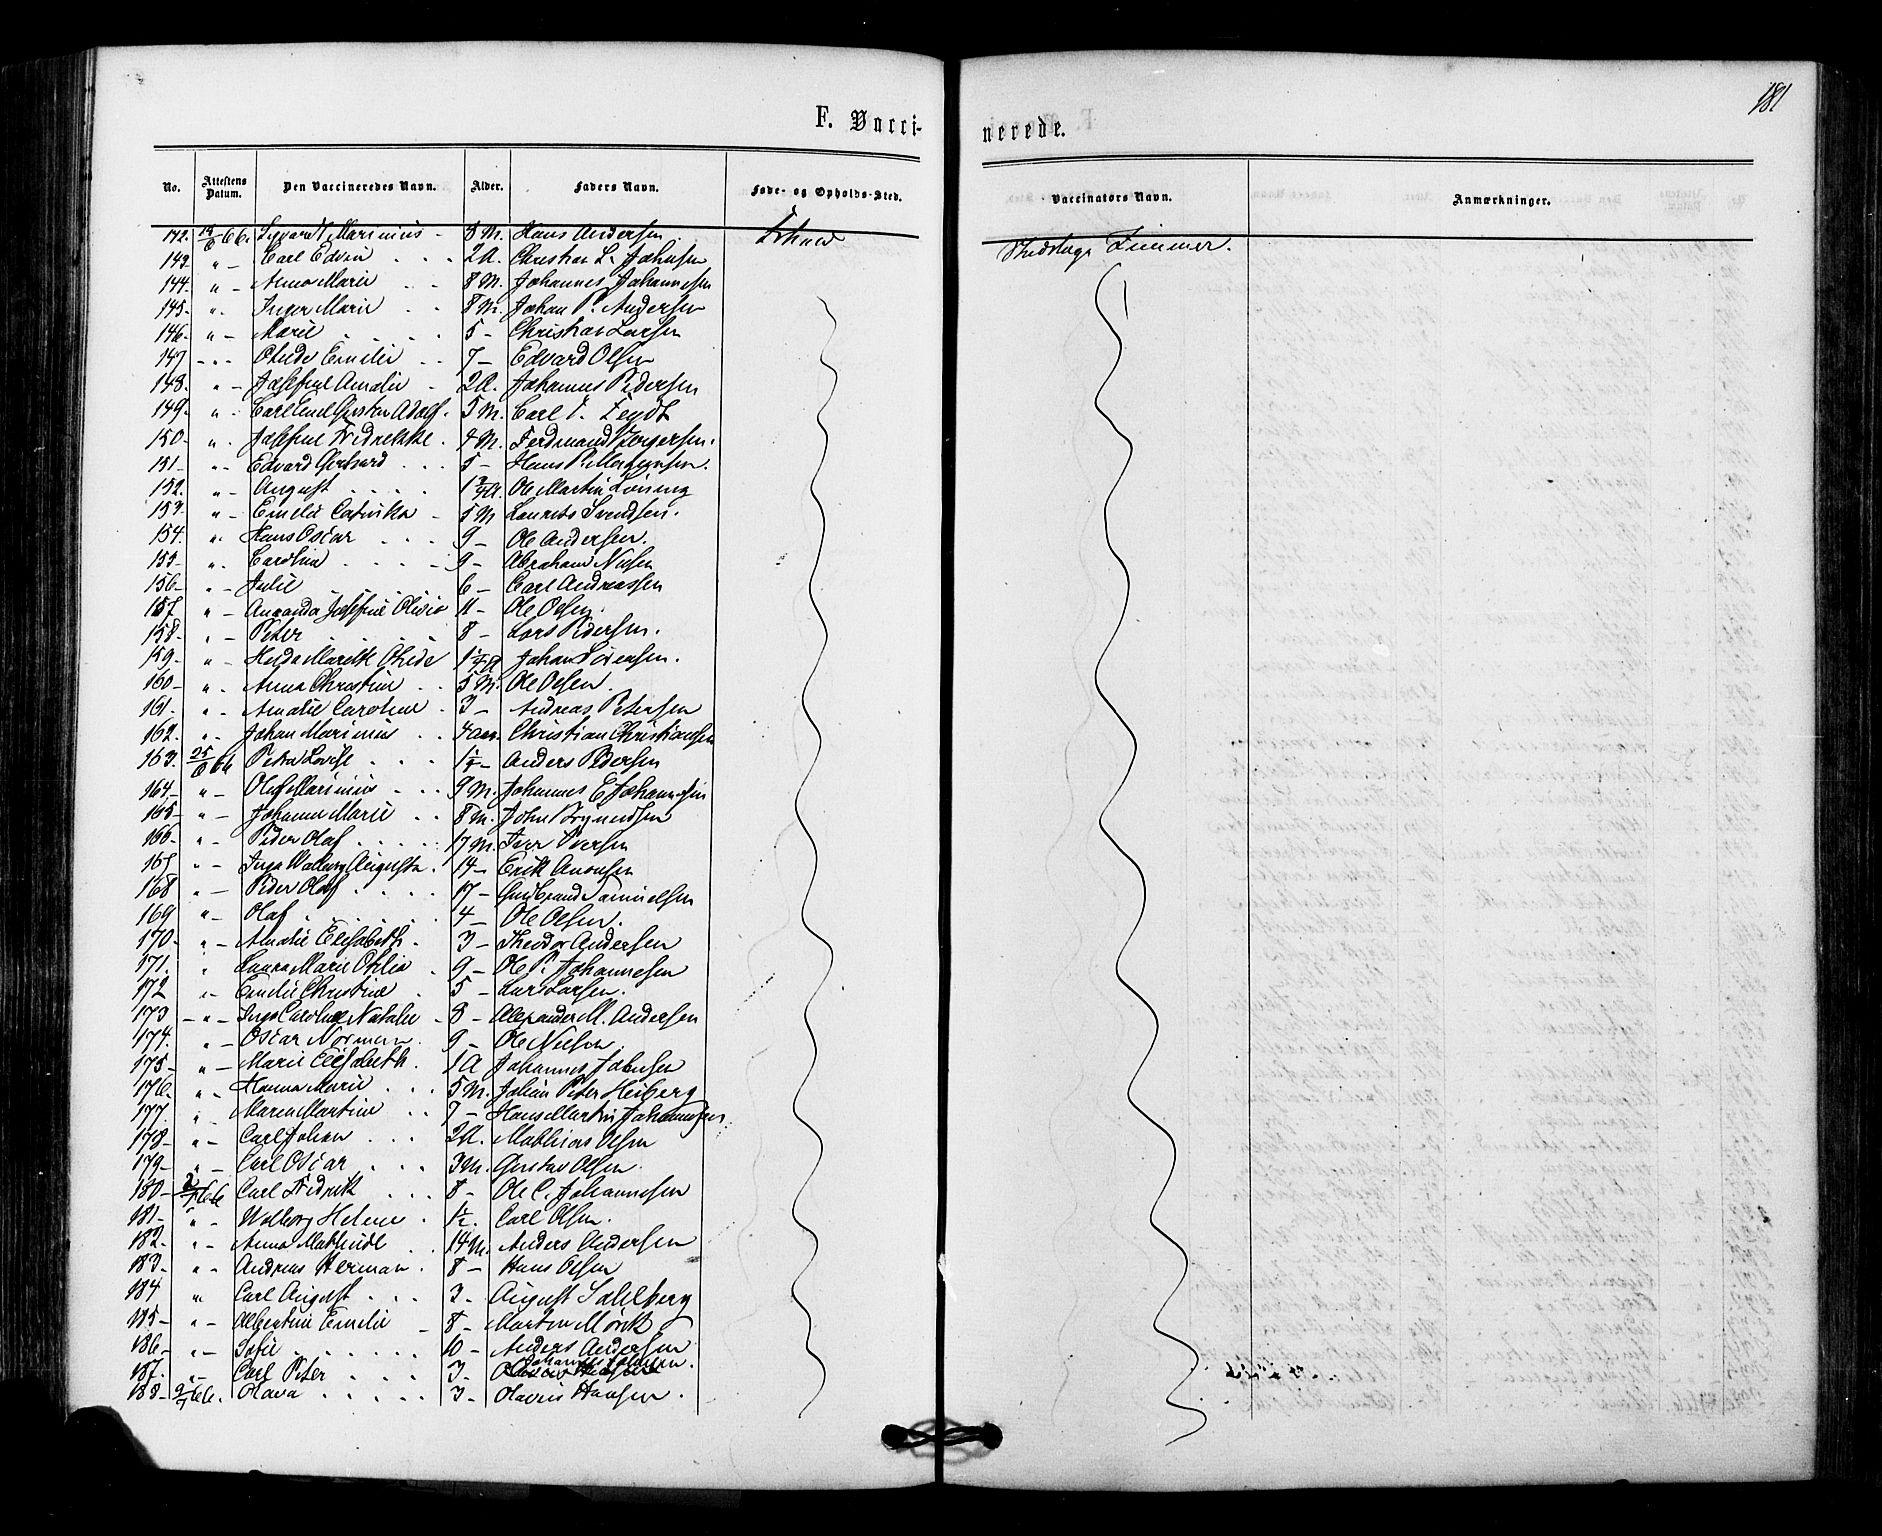 181
F. Vacci-
nerede.
No. Attestens Datum. Den Vaccineredes Navn. Alder. Faders Navn. Føde- og Opholds-Sted. Vaccinators Navn. Anmærkninger.
142. 66. Marinius 8 M. Hans Andersen
143. " Carl Edvin 2 A. Christian L. Johnsen Zimmer.
144. " Anna Marie 8 M. Johannes Johannesen
145. " Inger Marie 8 M. Johan P. Andersen
146. " Marie 5 - Christian Larsen
147 " Emilie 7 - Edvard Olsen
148. " Josefine Amalie 2 A. Johannes Pedersen
149. " Carl Emil Gustav Adolf. 5 M. Carl
150. " Josefine Fredrikke 4 M. Ferdinand
151 " Edvard Gerhard 5 - Hans P.
152. " August Ole Martin
153. " Emelie Catinka 5 M Laurits Svendsen.
154. " Hans Oscar 9 - Ole Andersen.
155. " Caroline 9 - Abraham Nilsen
156 " Julie 6 - Carl Andreassen
157. " Amanda Josefine Olivia 11 - Ole Olsen.
158. " Peter 8 - Lars Pedersen.
159. " Johan Sørensen.
160 " Anna Christine 5 M. Ole Olsen.
161. " Amalie Caroline 3 - Andreas Petersen
162. " Johan Marinius 4 Christian Christiansen
163. 25/6 66 Petra Lovise Anders Pedersen
164 " Oluf Marinius 9 M. Johannes E Johannesen
165 " Johanne Marie 8 M. John
166 " Peder Olaf 17 M. Iver Iversen
167 " Inga Walborg Augusta. 14 - Erik
168 " Peder Olaf 17 - Gulbrand Samuelsen
169 " Olaf 4 - Ole Olsen.
170 " Amalie Elisabeth. 3 - Theodor Andersen
171. " Laura Marie Otilia 9 - Ole P. Johannesen
172 " Emelie Christine 5 - Lars Larsen.
173 " Inga Caroline Natalie 8 - Alexander M. Andersen
174. " Oscar Norman 9 - Ole Nielsen
175 " Marie Elisabeth. 1 A Johannes
176. " Hanna Marie 5 M. Julius Peter Heiberg
177. " Maren Martine 7 - Hans Martin Johannesen
178 " Carl Johan 2 A. Mathias Olsen
179 " Carl Oscar 3 M. Gustav Olsen
180 2/7 66 Carl Fredrik 8 - Ole C. Johannesen
181 " Walborg Helene 1½. Carl Olsen.
182. " Anna Mathilde 14 M. Anders Andersen
183. " Andreas Herman 8 - Hans Olsen
184 " Carl August 3 - August Sahlberg
185 " Albertine Emilie 8 - Martin Mørk
186 " Sofie 10 - Anders Andersen
187. " Carl Peter 3 - Johannes
188 9/7 66. Olava 3 - Olavus Hansen.